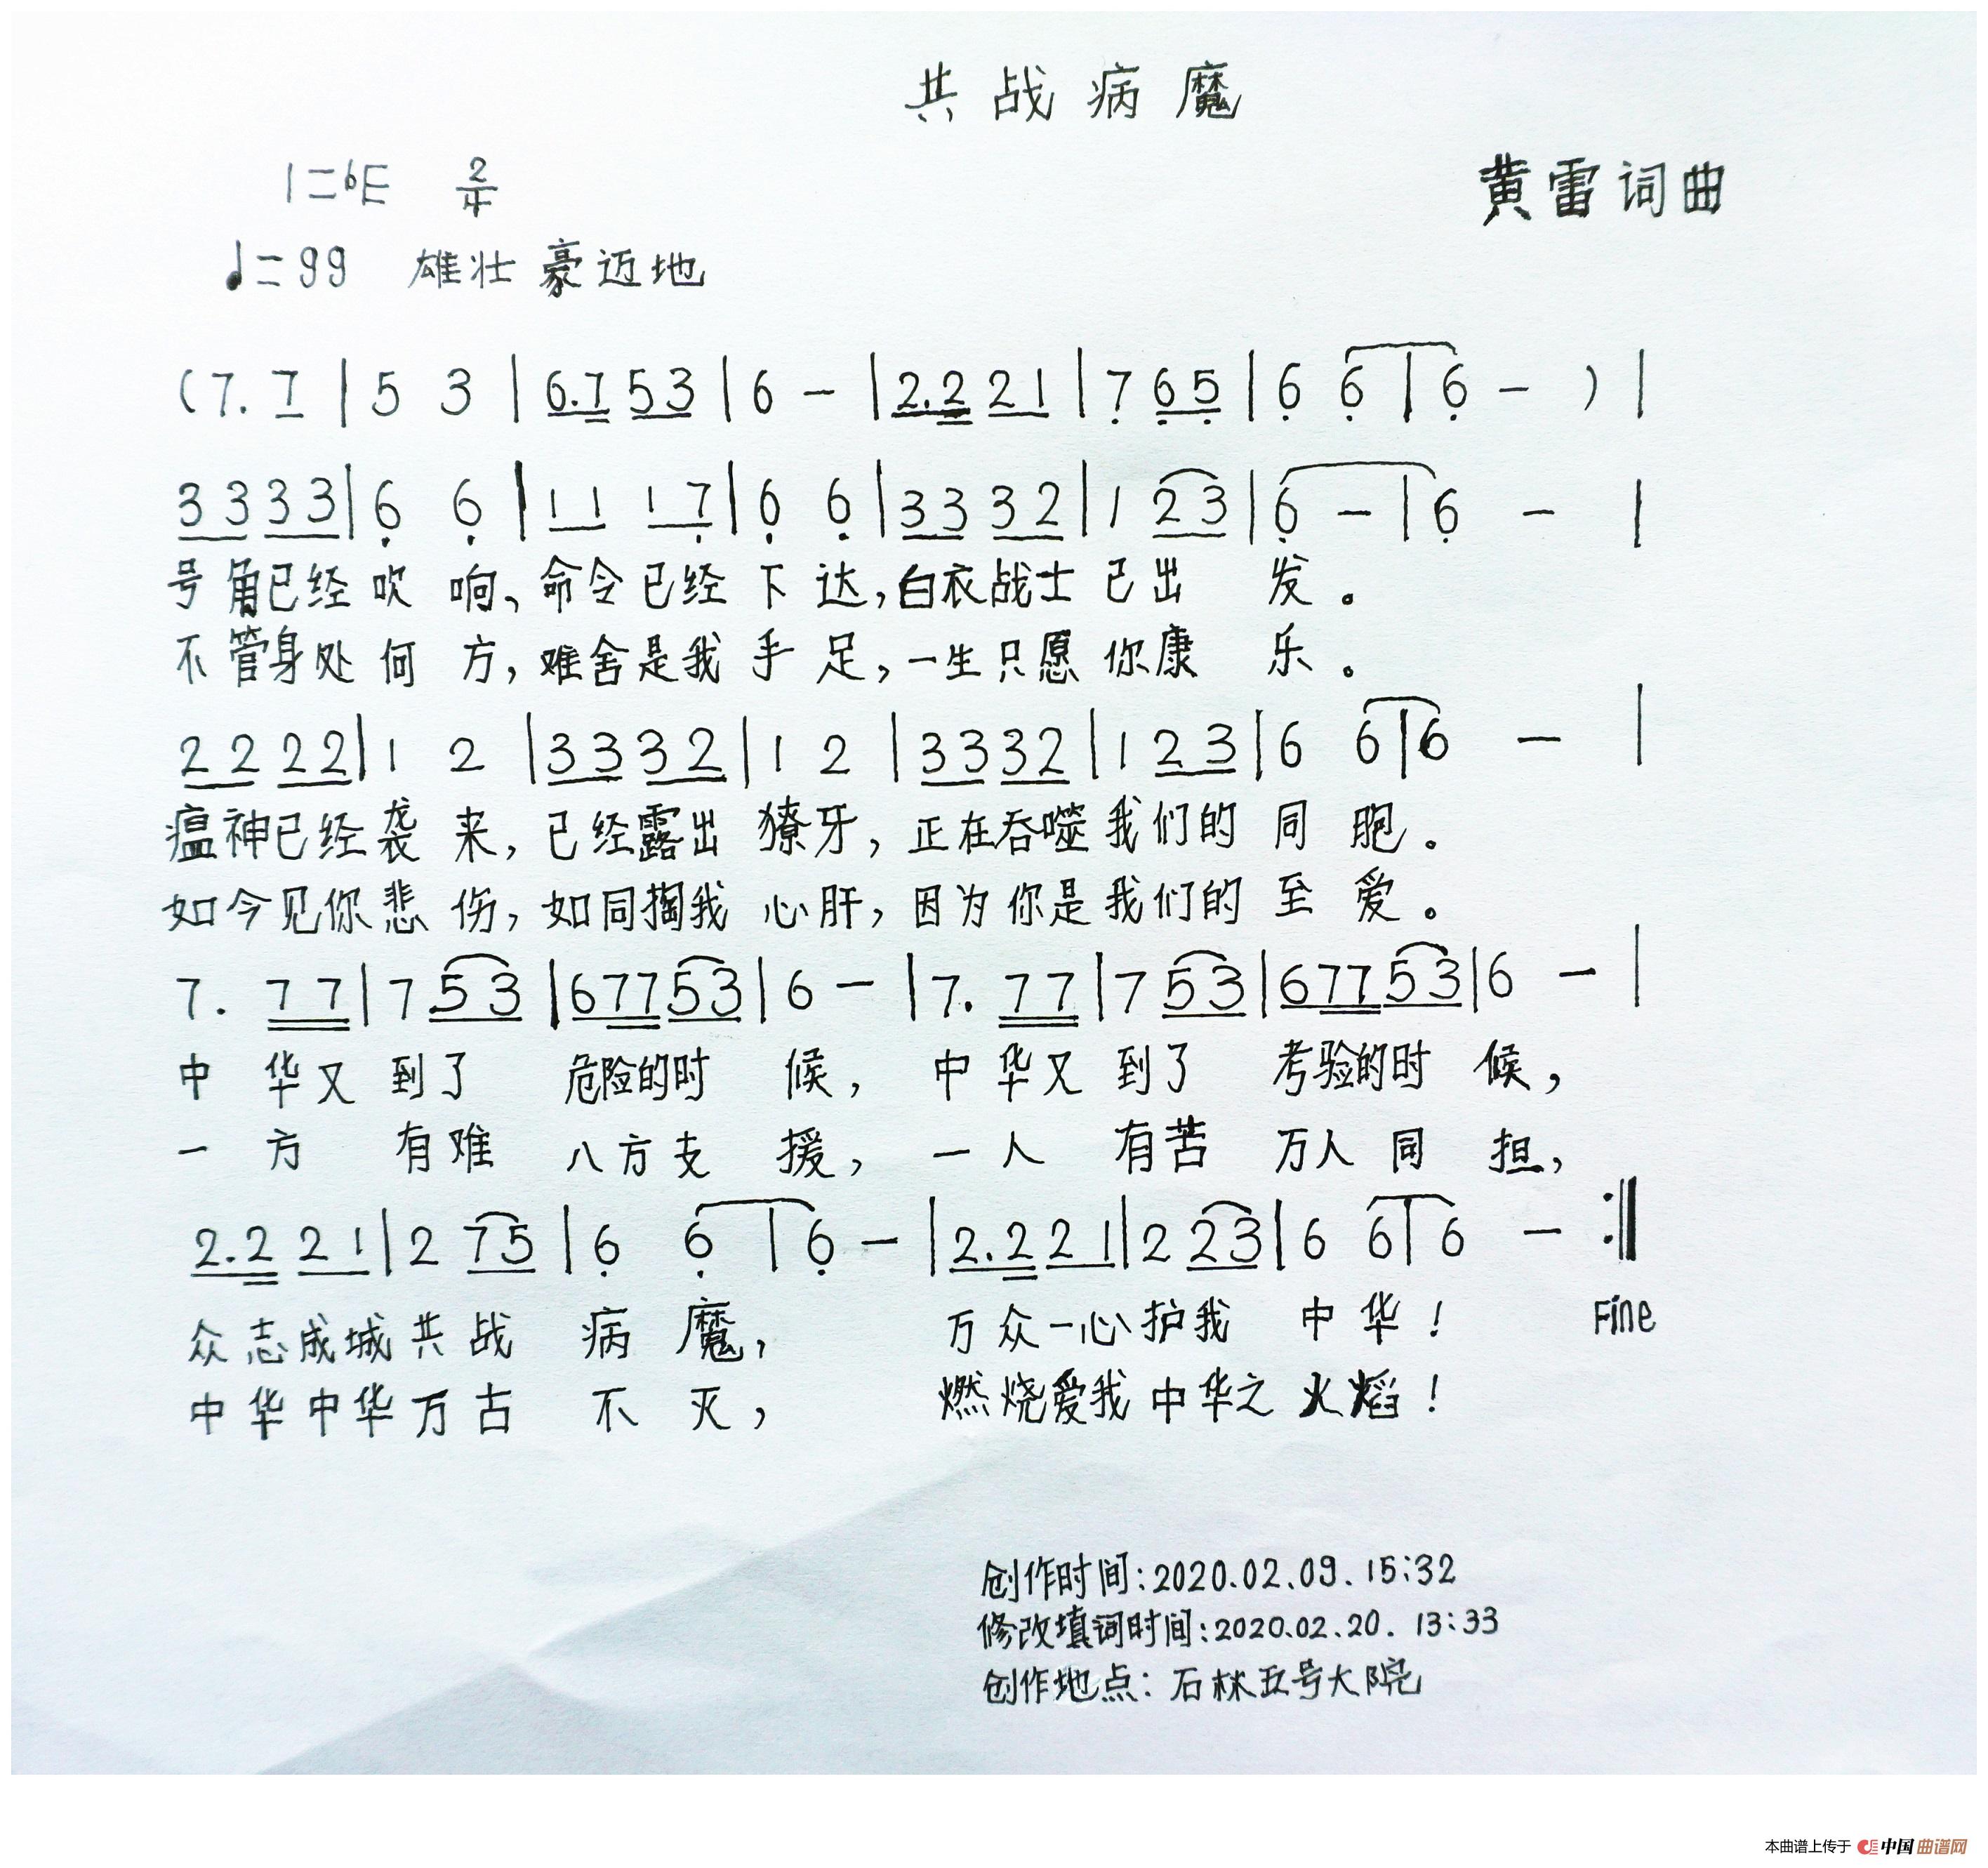 共战病魔
1=♭E 2/4
黄雷词曲
♩=99 雄壮豪迈地
(7. 7 | 5 3 | 6.7 53 | 6 - | 2.2 21 | 7 65 | 6 6 | 6 - ) |
33 33 | 6 6 | 11 17 | 6 6 | 33 32 | 1 23 | 6 - | 6 - |
号角已经吹响、命令已经下达,白衣战士已出发。
不管身处何方,难舍是我手足,一生只愿你康乐。
22 22 | 1 2 | 33 32 | 1 2 | 33 32 | 1 23 | 6 6 | 6 - |
瘟神已经袭来,已经露出獠牙,正在吞噬我们的同胞。
如今见你悲伤,如同掏我心肝,因为你是我们的至爱。
7. 77 | 7 53 | 677 53 | 6 - | 7. 77 | 7 53 | 677 53 | 6 - |
中华又到了危险的时候,中华又到了考验的时候,
一方有难八方支援,一人有苦万人同担,
2.2 21 | 2 75 | 6 6 | 6 - | 2.2 21 | 2 23 | 6 6 | 6 - :‖
众志成城共战病魔,万众一心护我中华! Fine
中华中华万古不灭,燃烧爱我中华之火焰!
创作时间:2020.02.09.15:32
修改填词时间:2020.02.20.13:33
创作地点:石林五号大院
本曲谱上传于 中国曲谱网